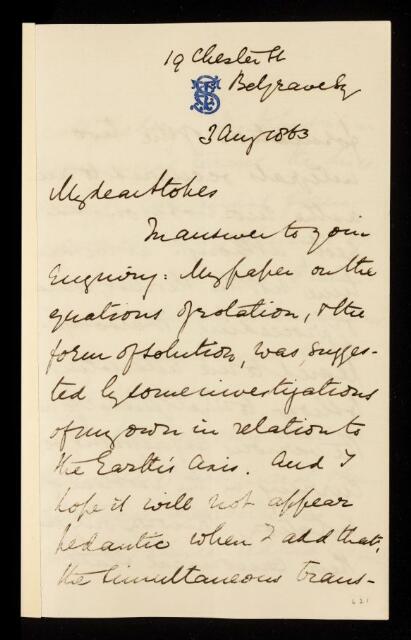 19 Chester St
Belgrave Sq
3 Aug 1863
My dear Stokes
In answer to your
Enquiry: My paper on the
equations of rotation, & the
form of solution, was sugges-
ted by some investigations
of my own in relation to
the Earth's Axis. And I
hope it will not appear
pedantic when I add that,
the simultaneous trans-
621